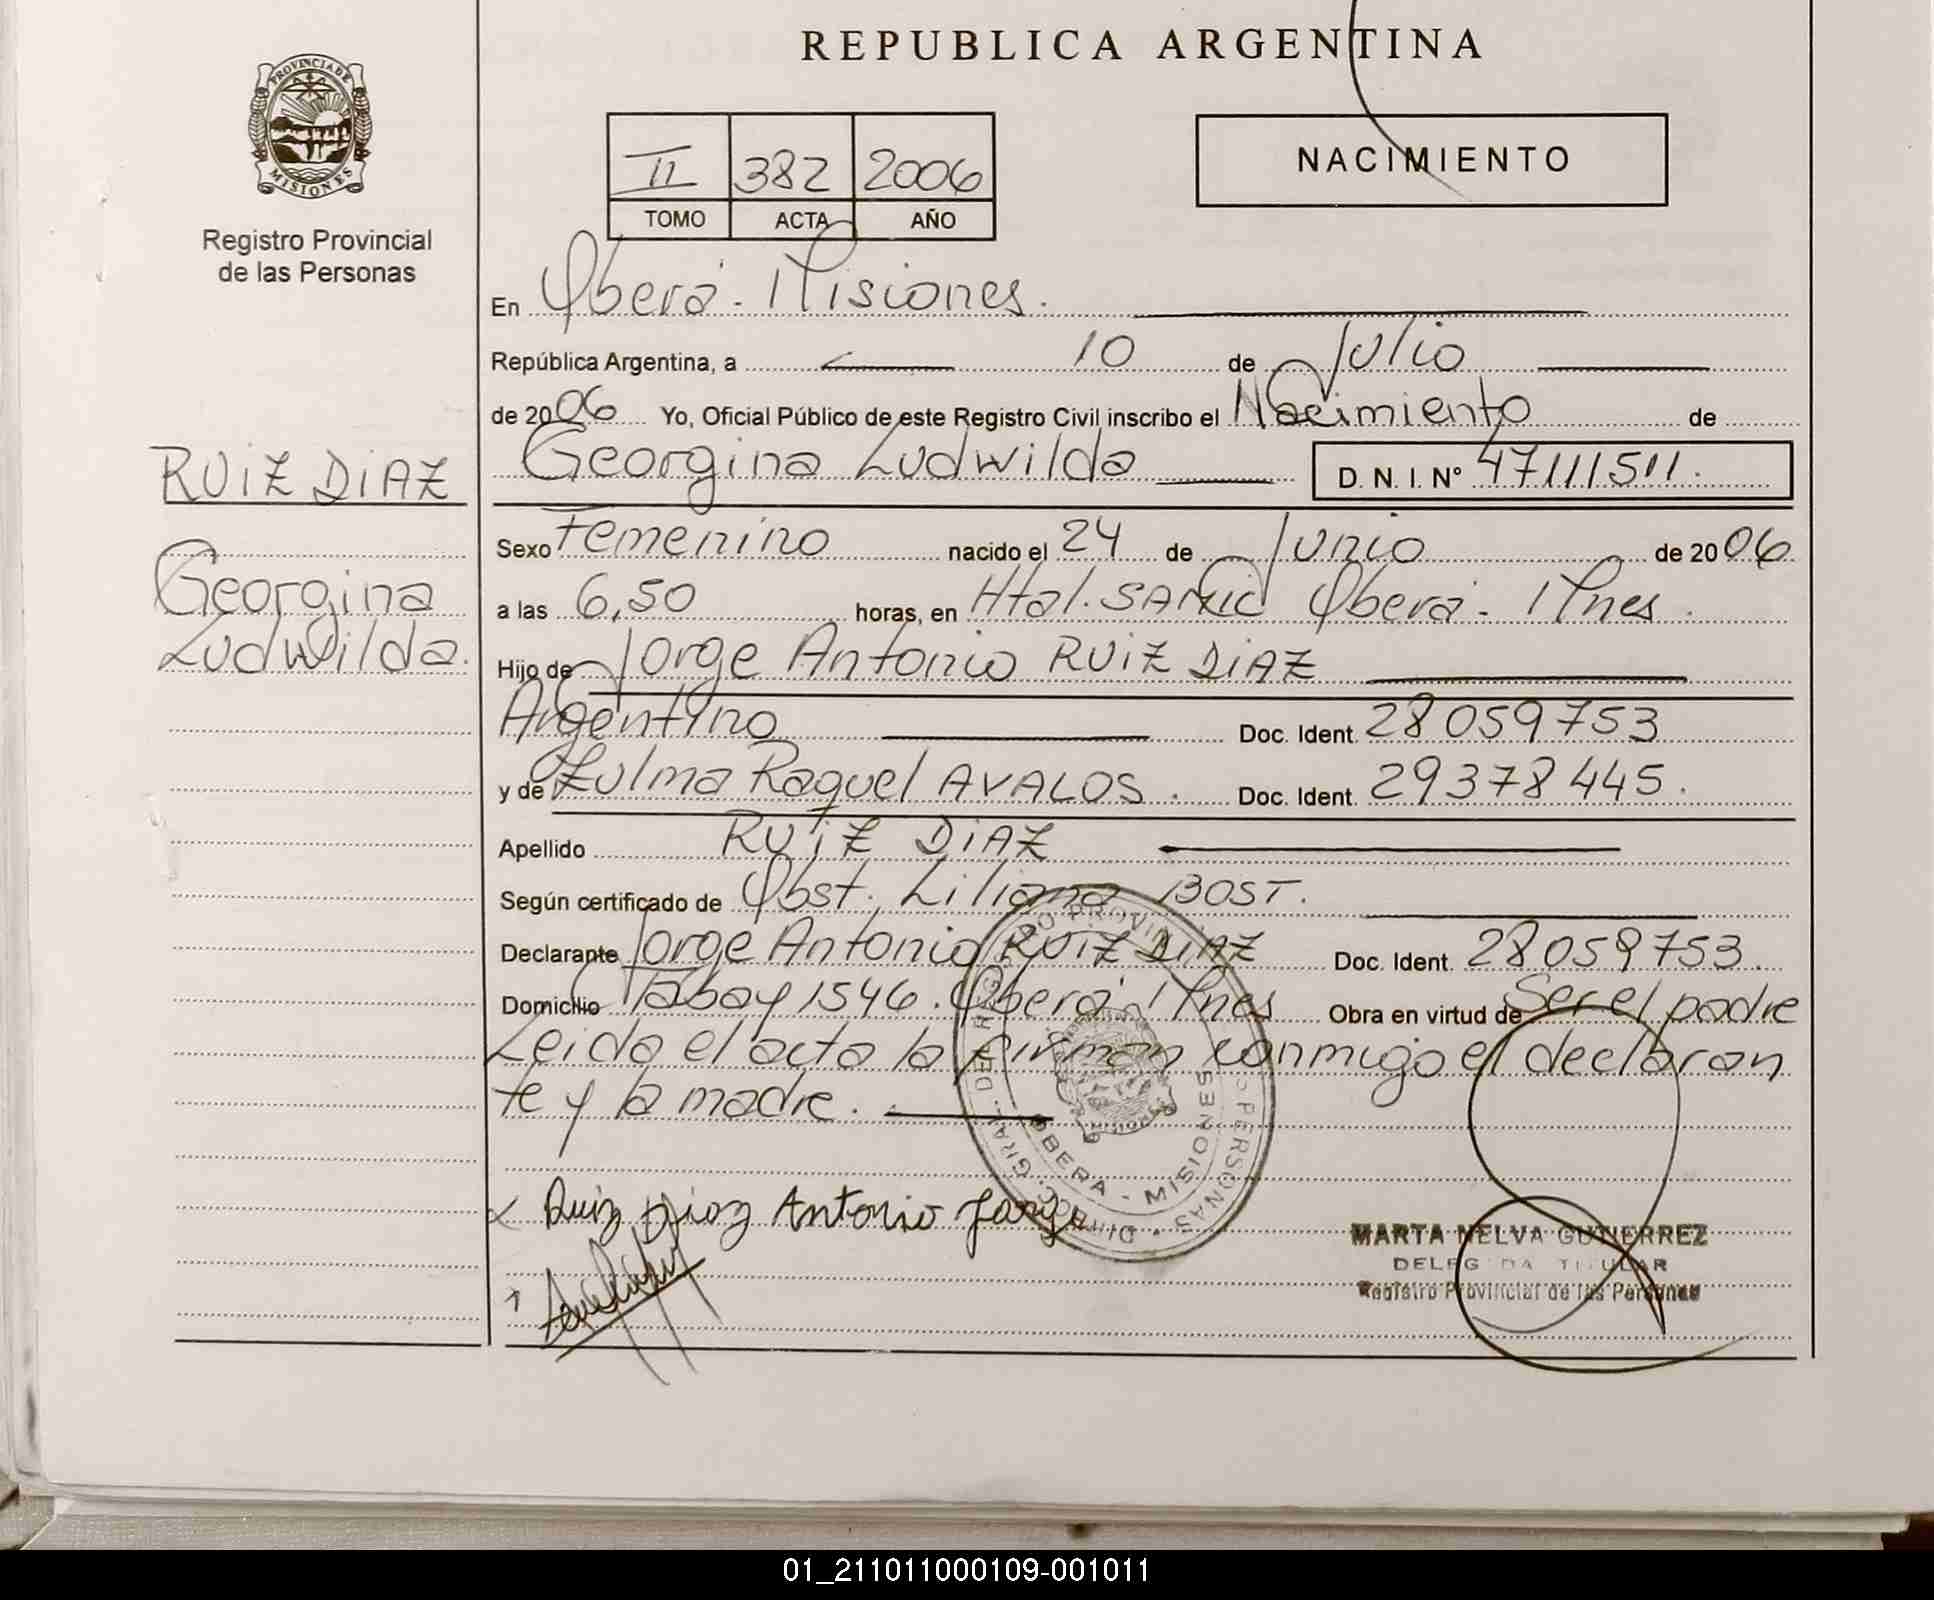 REPUBLICA ARGENTINA
PROVINCIA DE
MISIONES
Registro Provincial
de las Personas
II 382 2006
TOMO ACTA AÑO
NACIMIENTO
En Oberá - Misiones.
República Argentina, a 10 de Julio
de 2006 Yo, Oficial Público de este Registro Civil inscribo el Nacimiento de
Georgina Ludwilda D. N. I. Nº 47111511.
RUIZ DIAZ
Georgina
Ludwilda.
Sexo Femenino nacido el 24 de Junio de 2006
a las 6,50 horas, en Htal. SAMIC Oberá - Mnes.
Hijo de Jorge Antonio RUIZ DIAZ
Argentino Doc. Ident. 28059753
y de Zulma Raquel AVALOS. Doc. Ident. 29378445.
Apellido RUIZ DIAZ
Según certificado de Obst. Liliana BOST.
Declarante Jorge Antonio RUIZ DIAZ Doc. Ident. 28059753.
Domicilio Tabay 1546. Oberá - Mnes Obra en virtud de Ser el padre
Leida el acta la firman conmigo el declaran
te y la madre.
OBERA - MISIONES
Ruiz Diaz Antonio Jorge
MARTA NELVA GUTIERREZ
DELEGADA TITULAR
Registro Provincial de las Personas
01_211011000109-001011